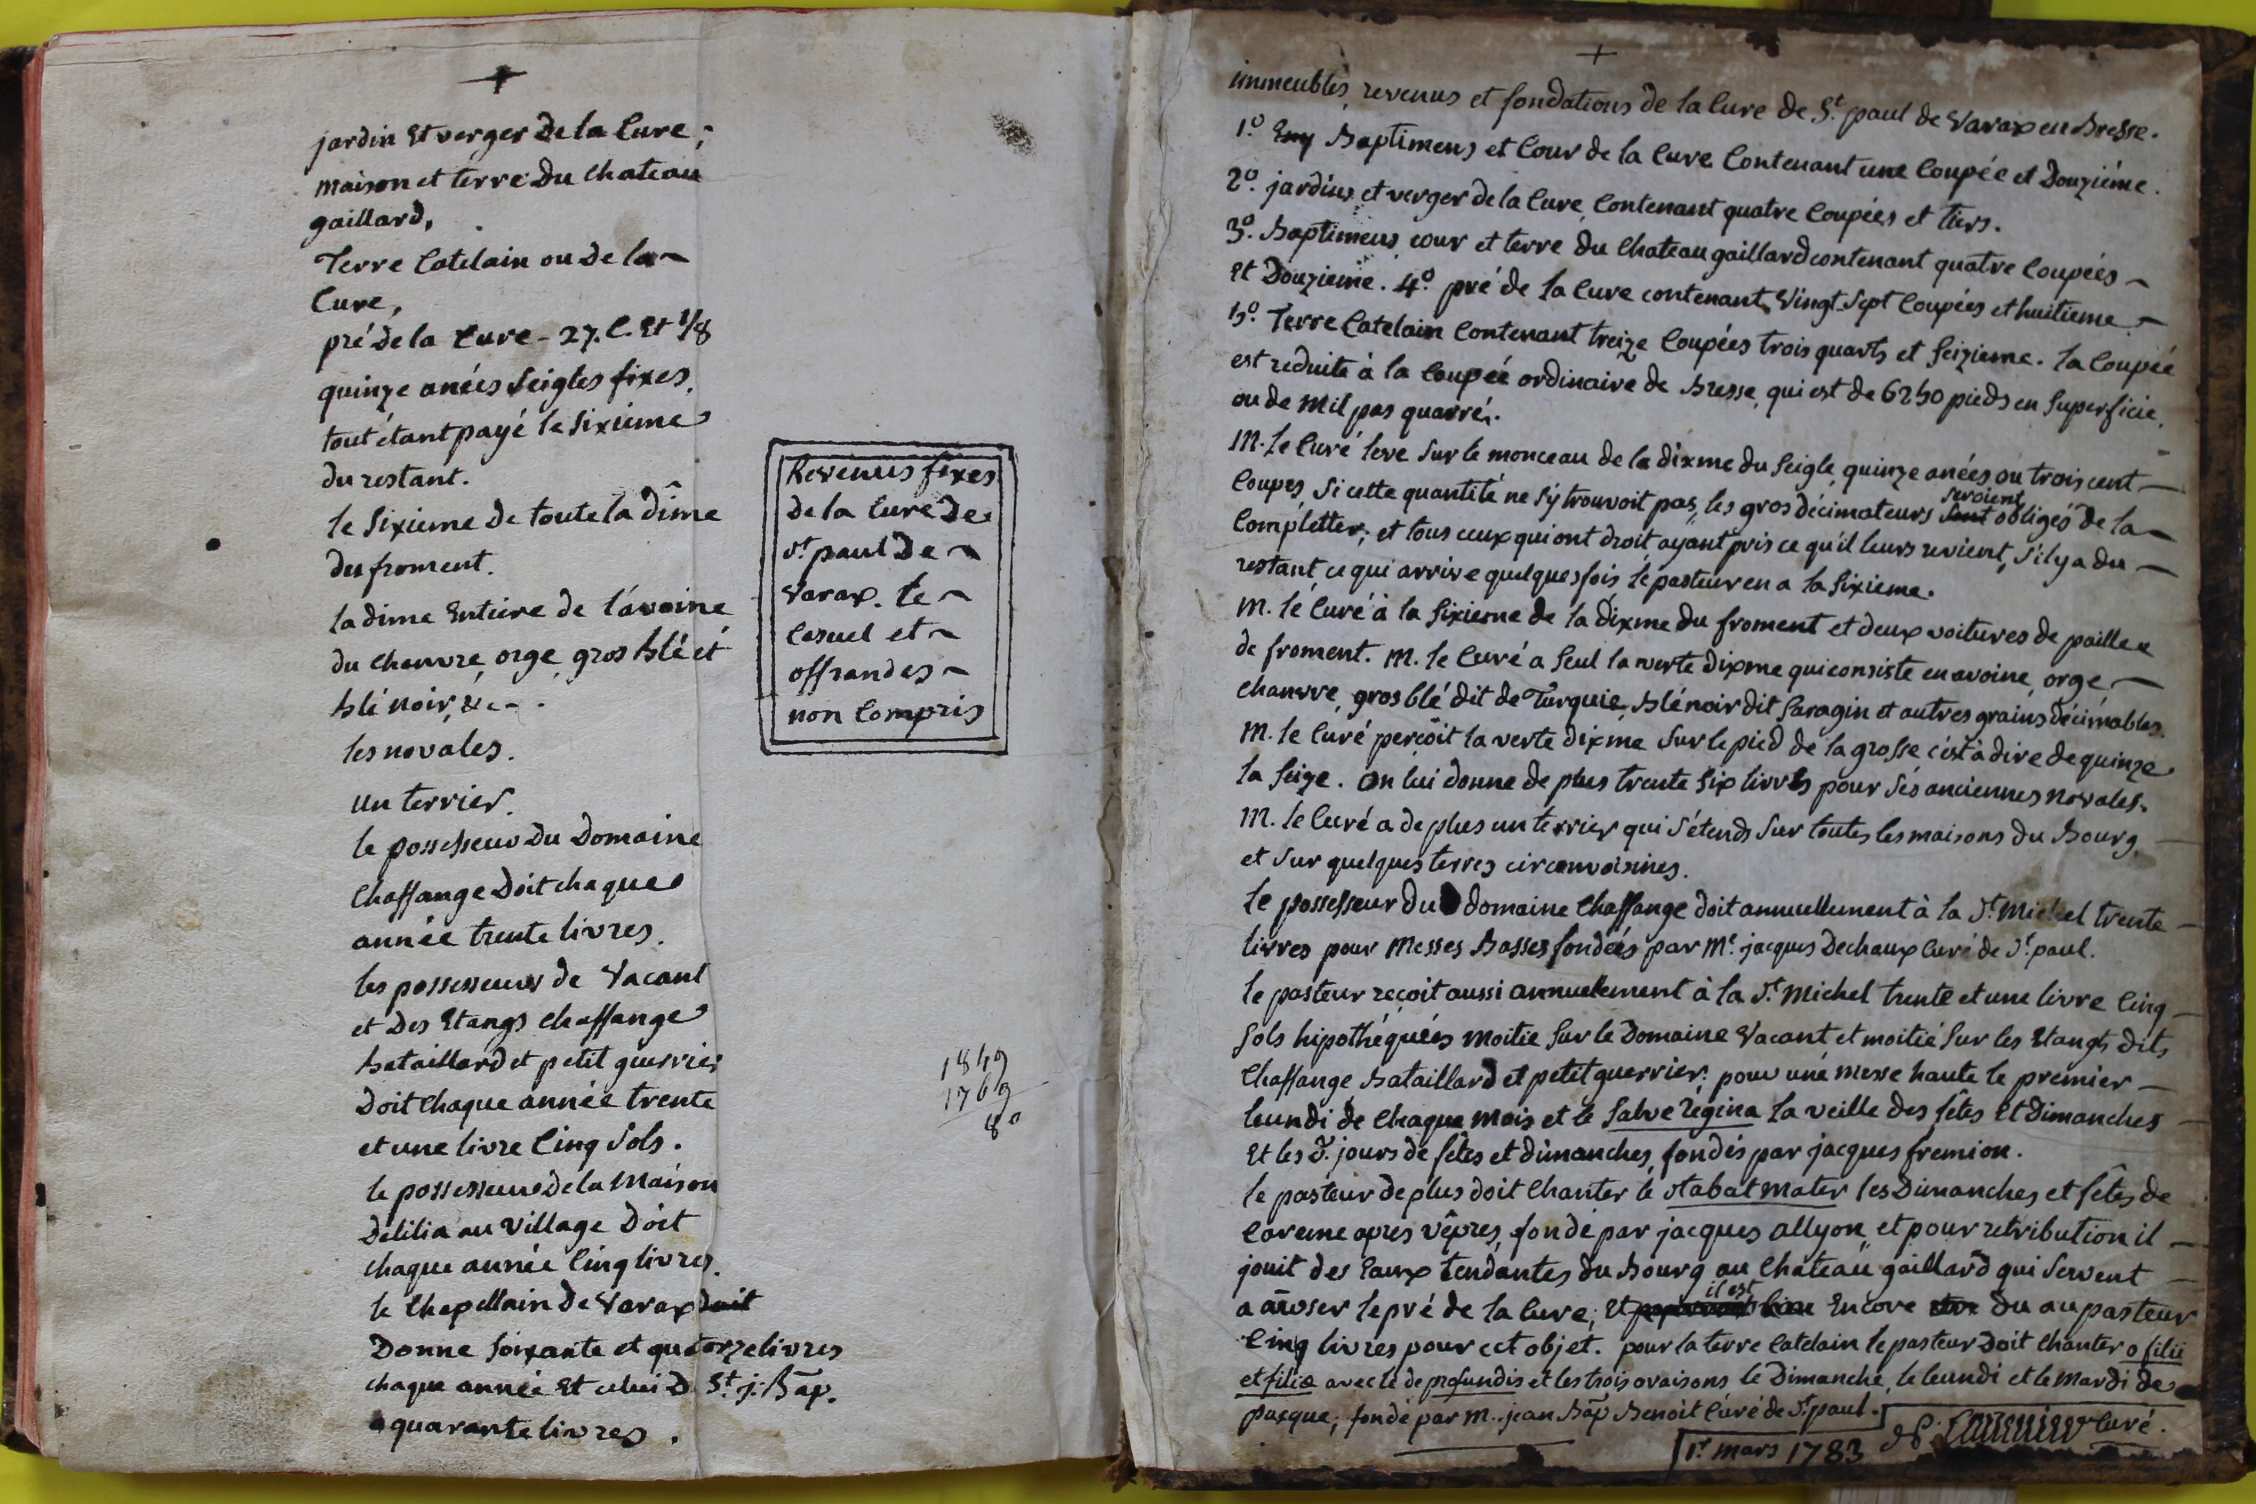 +
jardin Et verger De la Cure,
maison et terre Du Chateau
gaillard,
Terre Catelain ou De la
Cure,
pré De la Cure - 27. C. Et 1/8
quinze anées Seigles fixes,
tout étant payé le sixieme
du restant.
le Sixieme De toute la dîme
du froment.
la dime Entiere de l'avoine
du chanvre, orge, gros blé et
blé noir, &c -.
les novales.
un terrier.
le possesseur Du Domaine
Chaffange Doit chaque
année trente livres.
les possesseurs de Vacant
et Des Etangs Chaffange
bataillard et petit guerrier
Doit Chaque année trente
et une livre Cinq Sols.
le possesseur De la Maison
Délilia au Village Doit
chaque année Cinq livres.
le Chapellain de Varax doit
Donne Soixante et quatorze livres
chaque année Et celui D St. j. Bap.
quarante livres.
Revenus fixes
de la Cure De
St. paul De
Varax. le
Casuel et
offrandes
non Compris
1849
1769
80
+
immeubles, revenus et fondations de la Cure de St. paul de Varax en Bresse.
1º. Baptimens et Cour de la Cure Contenant une Coupée et Douzième.
2º. jardins et verger de la Cure Contenant quatre Coupées et tiers.
3º. Baptimens, cour et terre du Chateau gaillard contenant quatre Coupées
Et Douzieme. 4º. pré de la Cure contenant Vingt Sept Coupées et huitieme
5º. Terre Catelain Contenant treize Coupées trois quarts et Seizieme. la Coupée
est reduite à la Coupée ordinaire de Bresse, qui est de 6250 pieds en Superficie,
ou de Mil pas quarré.
M. le Curé leve Sur le monceau de la dixme du Seigle, quinze anées ou trois cent
Coupes, Si cette quantité ne s'y trouvoit pas, les gros décimateurs sont seroient obligés de la
Completter; et tous ceux qui ont droit ayant pris ce qu'il leurs revient, S'il y a du
restant, ce qui arrive quelques fois, le pasteur en a la Sixieme.
M. le Curé à la Sixieme de la Dixme du froment et deux voitures de paille
de froment. M. le Curé a Seul la verte dixme qui consiste en avoine, orge,
chanvre, gros blé dit de Turquie, blé noir dit Saragin et autres grains décimables.
M. le Curé perçoit la verte dixme Sur le pied de la grosse c'est à dire de quinze
la Seize. On lui donne de plus trente Six livres pour Sés anciennes Novales.
M. le Curé a de plus un terrier qui S'étends Sur toutes les maisons du Bourg,
et Sur quelques terres circonvoisines.
le possesseur du domaine Chaffange doit annuellement à la St. Michel trente
livres pour Messes Basses fondées par Mr. jacques Dechaux Curé de St. paul.
le pasteur reçoit aussi annuellement à la St. Michel trente et une livre Cinq
Sols hipothéquées Moitié Sur le Domaine Vacant et moitié Sur les Etangs dits,
Chaffange Bataillard et petit guerrier: pour une messe haute le premier
leundi de Chaque Mois et le Salve Regina la veille des fêtes Et dimanches
Et les d. jours de fêtes et dimanches, fondés par jacques fremion.
le pasteur de plus doit Chanter le Stabat mater les Dimanches et fêtes de
Careme après vêpres, fondé par jacques allyon, et pour retribution il
jouit des Eaux tendantes du Bourg au Chateau gaillard qui Servent
a aroser le pré de la Cure; Et il est Encore du au pasteur
Cinq livres pour cet objet. pour la terre Catelain le pasteur Doit Chanter o filii
et filiæ avec le de profundis et les trois oraisons le Dimanche, le leundi et le Mardi de
pasque; fondé par M. jean Bap Benoit Curé de St. paul.
1er. Mars 1783
Curé.